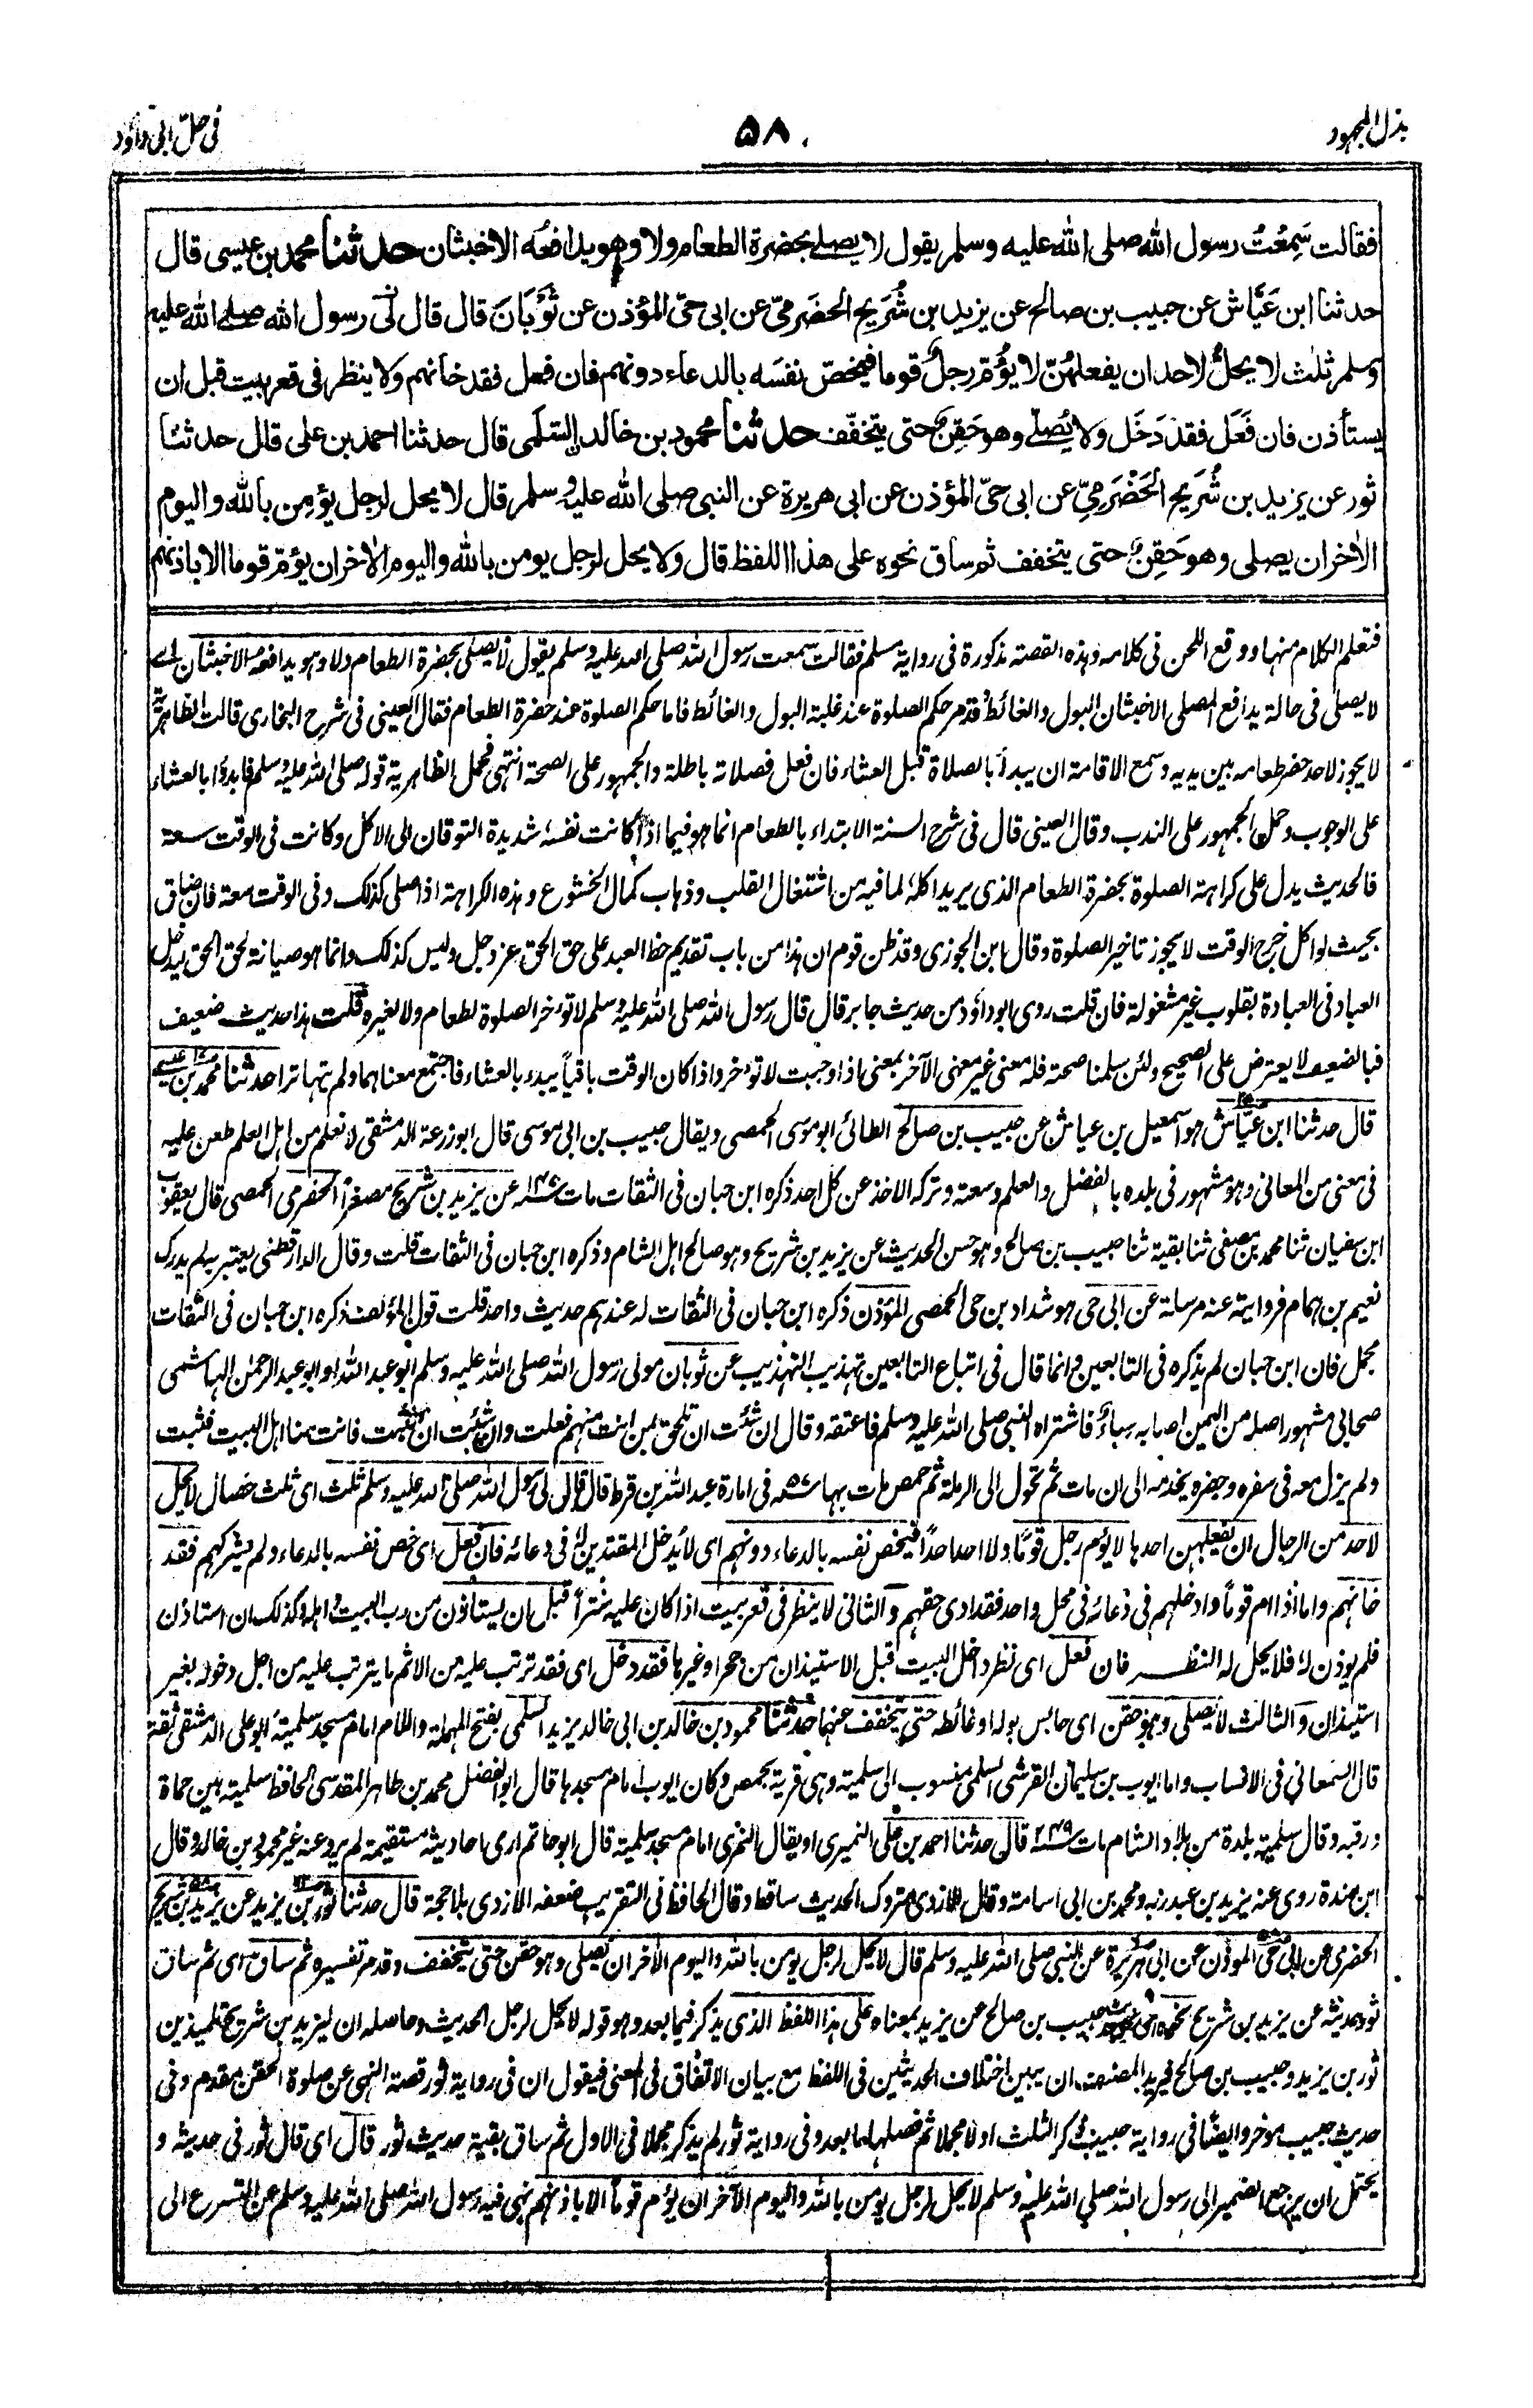 بذل المجهود
۵۸
فی حل ابی داؤد
فقالت سَمِعْتُ رسول الله صلى الله عليه وسلم يقول لا يصلے بحضرة الطعام ولا وهو يدافعه الاخبثان حدثنا محمد بن عيسى قال
حدثنا ابن عَيَّاش عن حبيب بن صالح عن يزيد بن شُرَيح الحضرمىّ عن ابى حىّ المؤذن عن ثَوْبَانَ قال قال لى رسول الله صلے الله عليه
وسلم ثلٰث لا يحلُّ لاحد ان يفعلهُنّ لا يؤُمّ رجلٌ قوما فيخصّ نفسَه بالدعاء دونهم فان فعل فقد خانهم ولا ينظر فى قعر بيت قبل ان
يستأذن فان فَعَلَ فقد دَخَل ولا يُصلّے وهو حَقِنٌ حتى يتخفّف حدثنا محمود بن خالد السلَمى قال حدثنا احمد بن على قال حدثنا
ثور عن يزيد بن شُرَيح الحَضْرَمىّ عن ابى حىّ المؤذن عن ابى هريرة عن النبى صلى الله عليه وسلم قال لا يحل لرجل يؤمن بالله واليوم
الاٰخر ان يصلى وهو حَقِنٌ حتى يتخفف ثم ساق نحوه على هذا اللفظ قال ولا يحل لرجل يومن بالله واليوم الاٰخر ان يؤمّ قوما الا باذنهم
فتعلم الكلام منها ووقع اللحن فى كلامه وهذه القصة مذكورة فى رواية مسلم فقالت سمعت رسول الله صلى الله عليه وسلم يقول لا يصلى بحضرة الطعام ولا وهو يدافعه الاخبثان اے
لا يصلى فى حالة يدافع المصلى الاخبثان البول والغائط قدم حكم الصلوة عند غلبة البول والغائط فاما حكم الصلوة عند حضرة الطعام فقال العينى فى شرح البخارى قالت الظاهرية
لا يجوز لاحد حضر طعامه بين يديه وسمع الاقامة ان يبدأ بالصلاة قبل العشاء فان فعل فصلاته باطلة والجمهور على الصحة انتهى فحمل الظاهرية قوله صلى الله عليه وسلم فابدؤا بالعشاء
على الوجوب وحمل الجمهور على الندب وقال العينى قال فى شرح السنة الابتداء بالطعام انما هو فيما اذا كانت نفسه شديدة التوقان الى الاكل وكانت فى الوقت سعة
فالحديث يدل على كراهة الصلوة بحضرة الطعام الذى يريد اكله لما فيه من اشتغال القلب وذهاب كمال الخشوع وهذه الكراهة اذا صلى كذلك وفى الوقت سعة فان ضاق
بحيث لو اكل خرج الوقت لا يجوز تاخير الصلوة وقال ابن الجوزى وقد ظن قوم ان هذا من باب تقديم حظ العبد على حق الحق عز وجل وليس كذلك وانما هو صيانة لحق الحق ليدخل
العباد فى العبادة بقلوب غير مشغولة فان قلت روى ابو داؤد من حديث جابر قال قال رسول الله صلى الله عليه وسلم لا تؤخر الصلوة لطعام ولا لغيره قلت هذا حديث ضعيف
فبالضعيف لا يعترض على الصحيح ولئن سلمنا صحته فله معنى غير معنى الآخر بمعنى اذا وجبت لا تؤخر واذا كان الوقت باقياً يبدء بالعشاء فاجتمع معناهما ولم يتهاترا حدثنا محمد بن عيسے
قال حدثنا ابن عيّاش هو اسمعيل بن عياش عن حبيب بن صالح الطائى ابو موسى الحمصى ويقال حبيب بن ابى موسى قال ابو زرعة الدمشقى لا نعلم من اهل العلم طعن عليه
فى معنى من المعانى وهو مشهور فى بلده بالفضل والعلم وسعته وتركه الاخذ عن كل احد ذكره ابن حبان فى الثقات مات ۱۴۷ عن يزيد بن شريح مصغراً الحضرمى الحمصى قال يعقوب
ابن سفيان ثنا محمد بن مصفى ثنا بقية ثنا حبيب بن صالح وهو حسن الحديث عن يزيد بن شريح وهو صالح اهل الشام وذكره ابن حبان فى الثقات قلت وقال الدارقطنى يعتبر به لم يدرك
نعيم بن همام فروايته عنه مرسلة عن ابى حى هو شداد بن حى الحمصى المؤذن ذكره ابن حبان فى الثقات له عندهم حديث واحد قلت قول المؤلف ذكره ابن حبان فى الثقات
مجمل فان ابن حبان لم يذكره فى التابعين وانما قال فى اتباع التابعين تهذيب التهذيب عن ثوبان مولى رسول الله صلى الله عليه وسلم ابو عبد الله او ابو عبد الرحمٰن الهاشمى
صحابى مشهور اصله من اليمن اصابه سباء فاشتراه النبى صلى الله عليه وسلم فاعتقه وقال ان شئت ان تلحق بمن انت منهم فعلت وان شئت ان تثبت فانت منا اهل البيت فثبت
ولم يزل معه فى سفره وحضره يخدمه الى ان مات ثم تحول الى الرملة ثم حمص مات بها ۵۴ فى امارة عبد الله بن قرط قال قال لى رسول الله صلى الله عليه وسلم ثلث اى ثلث خصال لا يحل
لاحد من الرجال ان يفعلهن احدها لا يؤم رجل قومًا ولا احدا احدًا فيخص نفسه بالدعاء دونهم اى لا يدخل المقتدين له فى دعائه فان فعل اى خص نفسه بالدعاء ولم يشركهم فقد
خانهم واما اذا ام قومًا وادخلهم فى دعائه فى محل واحد فقد ادى حقهم والثانى لا ينظر فى قعر بيت اذا كان عليه ستراً قبل ان يستاذن من رب البيت واهله وكذلك ان استاذن
فلم يوذن له فلا يحل له النظر فان فعل اى نظر داخل البيت قبل الاستيذان من جحر او غيرها فقد دخل اى فقد ترتب عليه من الاثم ما يترتب عليه من اجل دخوله بغير
استيذان والثالث لا يصلى وهو حقن اى حابس بوله او غائطه حتى يتخفف عنهما حدثنا محمود بن خالد بن ابى خالد يزيد السلمى بفتح المهملة واللام امام مسجد سلمية ابو على الدمشقى ثقة
قال السمعانى فى الانساب واما ايوب بن سليمان القرشى السلمى منسوب الى سلمية وهى قرية بحمص وكان ايوب امام مسجدها قال ابو الفضل محمد بن طاهر المقدسى الحافظ سلمية بين حماة
ورقبه وقال سلمية بلدة من بلاد الشام مات ۲۴۹ قال حدثنا احمد بن على النميرى او يقال النمرى امام مسجد سلمية قال ابو حاتم ارى احاديثه مستقيمة لم يرو عنه غير محمود بن خالد وقال
ابن مندة روى عنه يزيد بن عبد ربه ومحمد بن ابى اسامة وقال الازدى متروك الحديث ساقط وقال الحافظ فى التقريب ضعفه الازدى بلا حجة قال حدثنا ثور بن يزيد عن يزيد بن شريح
الحضرمى عن ابى حى المؤذن عن ابى هريرة عن النبى صلى الله عليه وسلم قال لا يحل لرجل يومن بالله واليوم الآخر ان يصلى وهو حقن حتى يتخفف وقدم تفسيره ثم ساق اى ثم ساق
ثور حديثه عن يزيد بن شريح نحوه اى حديث حبيب بن صالح عن يزيد بمعناه على هذا اللفظ الذى يذكر فيما بعد وهو قوله لا يحل لرجل الحديث وحاصله ان ليزيد بن شريح تلميذين
ثور بن يزيد وحبيب بن صالح فيريد المصنف ان يبين اختلاف الحديثين فى اللفظ مع بيان الاتفاق فى المعنى فيقول ان فى رواية ثور قصة النهى عن صلوة الحقن مقدم وفى
حديث حبيب مؤخر وايضًا فى رواية حبيب ذكر الثلث اولا مجملا ثم فصلها بعد وفى رواية ثور لم يذكر مجملا فى الاول ثم ساق بقية حديث ثور قال اى قال ثور فى حديثه و
يحتمل ان يرجع الضمير الى رسول الله صلى الله عليه وسلم لا يحل لرجل يومن بالله واليوم الآخر ان يؤم قوماً الا باذنهم نهى فيه رسول الله صلى الله عليه وسلم عن التسرع الى